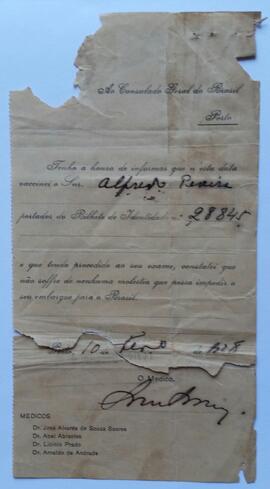 Ao Consulado Geral do Brasil
Porto
Tenho a honra de informar que n'esta data
vaccinei o Snr. Alfredo Pereira
portador do Bilhete de Identidade n.º 28845
e que tendo procedido ao seu exame, constatei que
não soffre de nenhuma molestia que possa impedir o
seu embarque para o Brasil.
10 de Fev.º de 1928
O Medico,
MEDICOS
Dr. José Alvares de Souza Soares
Dr. Abel Abrantes
Dr. Licinio Prado
Dr. Arnaldo de Andrade